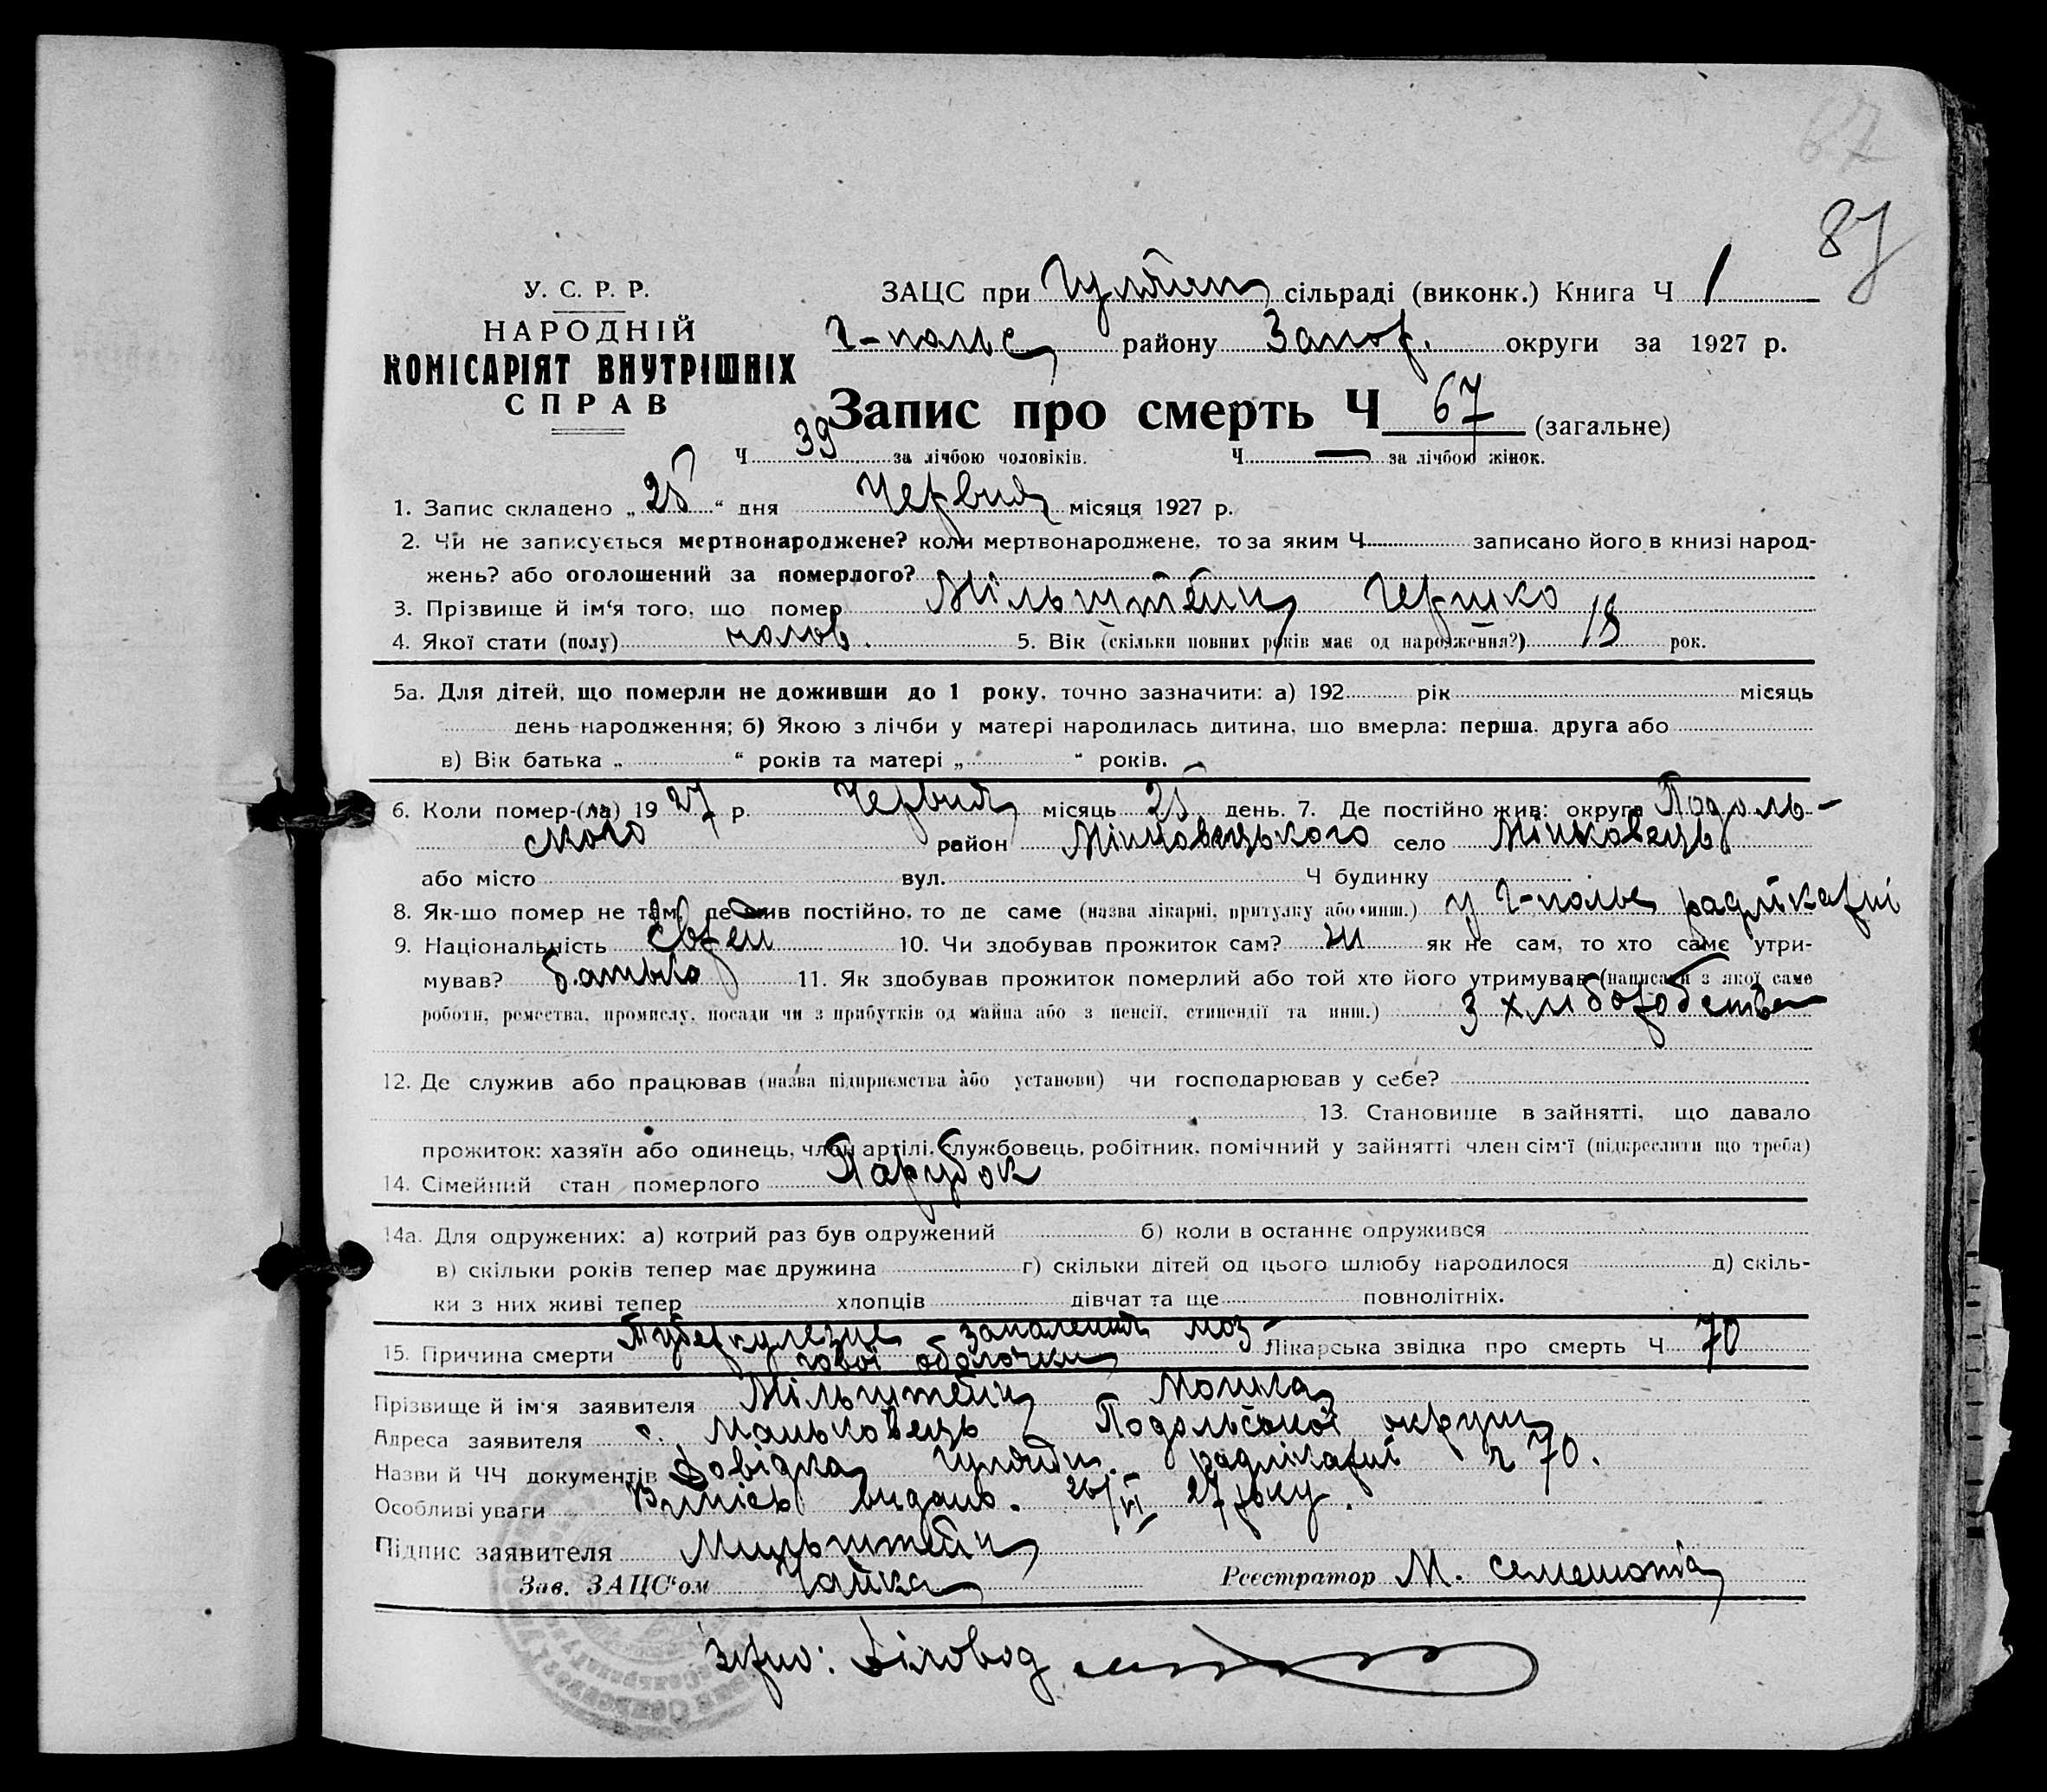 67
87
У. С. Р. Р.
НАРОДНІЙ
КОМІСАРІЯТ ВНУТРІШНІХ
СПРАВ
ЗАЦС при Гуляйп сільраді (виконк.) Книга Ч 1
Г-польс району Запор. округи за 1927 р.
Запис про смерть Ч 67 (загальне)
Ч 39 за лічбою чоловіків. Ч — за лічбою жінок.
1. Запис складено „ 25 “ дня Червня місяця 1927 р.
2. Чи не записується мертвонароджене? коли мертвонароджене, то за яким Ч записано його в книзі народ-
жень? або оголошений за померлого?
3. Прізвище й ім‘я того, що помер Мільштейн Гершко
4. Якої стати (полу) чолов. 5. Вік (скільки повних років має од народження?) 18 рок.
5а. Для дітей, що померли не доживши до 1 року, точно зазначити: а) 192 рік місяць
день народження; б) Якою з лічби у матері народилась дитина, що вмерла: перша, друга або
в) Вік батька „ “ років та матері „ “ років.
6. Коли помер-(ла) 19 27 р. Червня місяць 25 день. 7. Де постійно жив: округа Подоль-
ського район Міньковецького село Міньковець
або місто вул. Ч будинку
8. Як-що помер не там, де жив постійно, то де саме (назва лікарні, притулку або инш.) у Г-польс райлікарні
9. Національність Єврей 10. Чи здобував прожиток сам? ні як не сам, то хто саме утри-
мував? батько 11. Як здобував прожиток померлий або той хто його утримував (написати з якої саме
роботи, ремества, промислу, посади чи з прибутків од майна або з пенсії, стипендії та инш.) З хліборобства
12. Де служив або працював (назва підприємства або установи) чи господарював у себе?
13. Становище в зайнятті, що давало
прожиток: хазяїн або одинець, член артілі, службовець, робітник, помічний у зайнятті член сім‘ї (підкреслити що треба)
14. Сімейний стан померлого Парубок
14а. Для одружених: а) котрий раз був одружений б) коли в останнє одружився
в) скільки років тепер має дружина г) скільки дітей од цього шлюбу народилося д) скіль-
ки з них живі тепер хлопців дівчат та ще повнолітніх.
15. Причина смерти Туберкулезне запалення моз-
гової оболочки Лікарська звідка про смерть Ч 70
Прізвище й ім‘я заявителя Мільштейн Мошка
Адреса заявителя с. Маньковець Подольської округи
Назви й ЧЧ документів Довідка Гуляйп. райлікарні ч 70.
Особливі уваги Випись видано. 26/VI 27 року.
Підпис заявителя Мильштейн
Зав. ЗАЦС‘ом Чайка Реєстратор М.
Згідно: Діловод